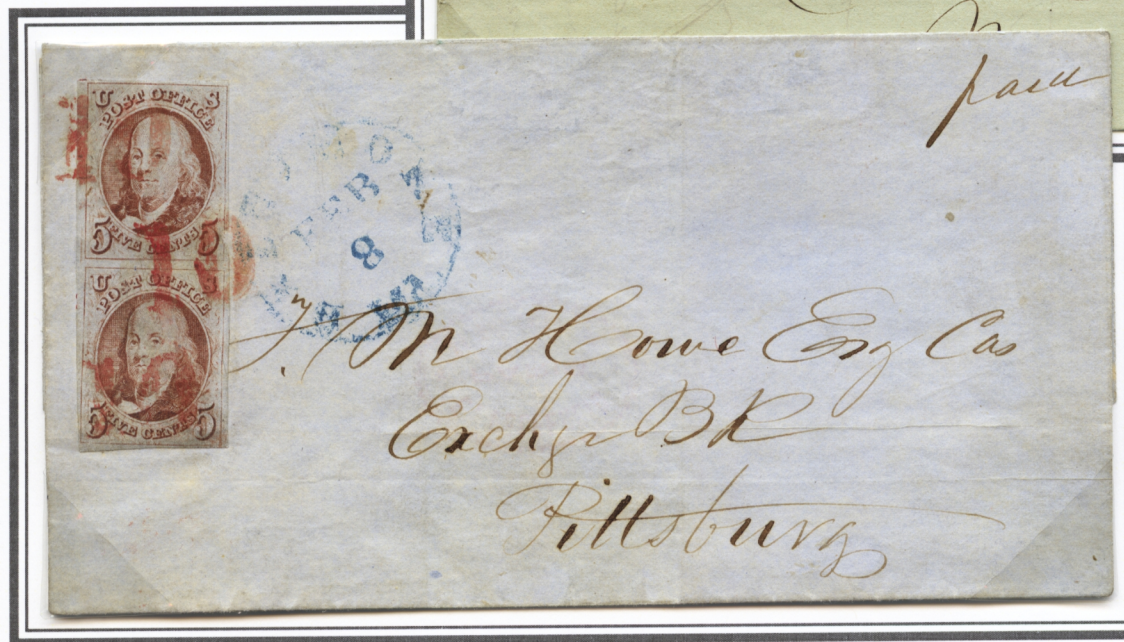 paid
U S
POST OFFICE
5 FIVE CENTS 5
U S
POST OFFICE
5 FIVE CENTS 5
FEB
8
10
T. M Howe Esq Cas
Exchge BK
Pittsburg